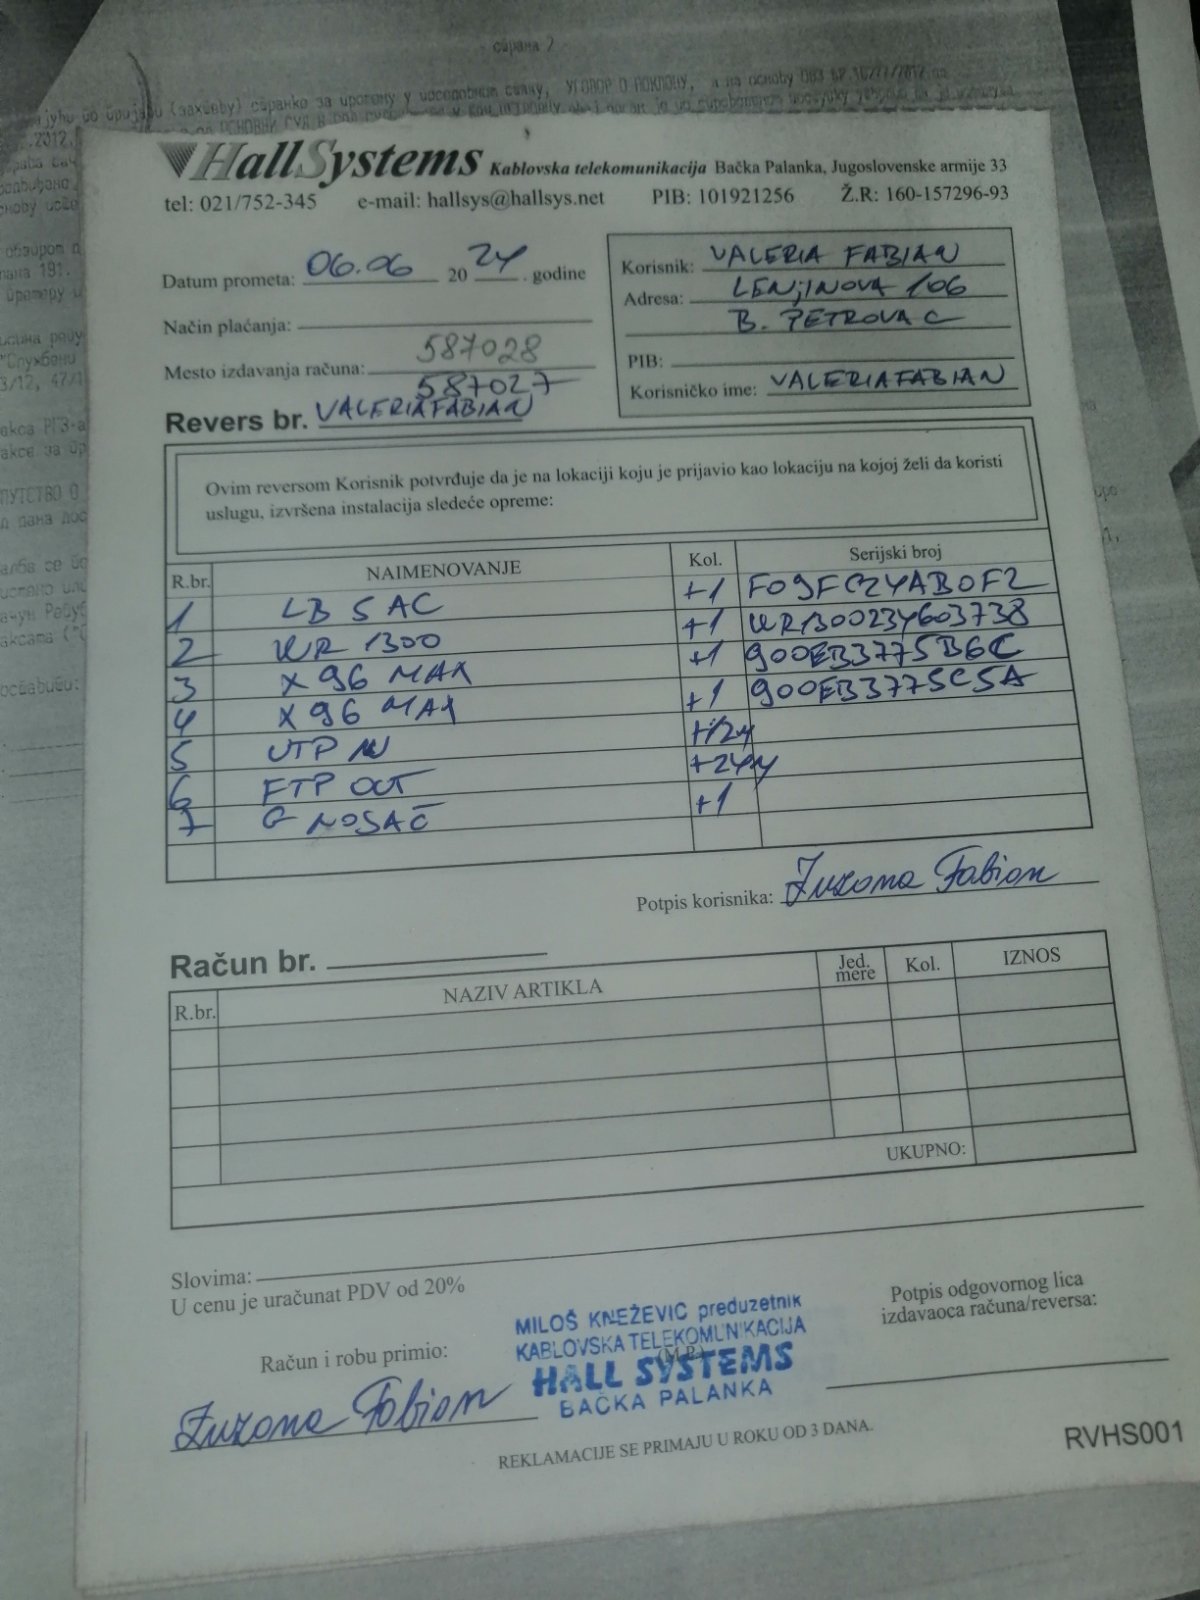 страна 2
HallSystems Kablovska telekomunikacija Bačka Palanka, Jugoslovenske armije 33
tel: 021/752-345 e-mail: hallsys@hallsys.net PIB: 101921256 Ž.R: 160-157296-93
Datum prometa: 06.06 20 24. godine
Način plaćanja:
587028
Mesto izdavanja računa:
587027
Revers br. VALERIAFABIAN
Korisnik: VALERIA FABIAN
Adresa: LENJINOVA 106
B. PETROVAC
PIB:
Korisničko ime: VALERIAFABIAN
Ovim reversom Korisnik potvrđuje da je na lokaciji koju je prijavio kao lokaciju na kojoj želi da koristi
uslugu, izvršena instalacija sledeće opreme:
R.br. NAIMENOVANJE Kol. Serijski broj
1 LB 5 AC +1 F09FC24AB0F2
2 WR 1300 +1 WR1300234603738
3 X96 MAX +1 900EB3775B6C
4 X96 MAX +1 900EB3775C5A
5 UTP IN
6 FTP OUT
7 G NOSAČ +1
Potpis korisnika: Zuzana Fabian
Račun br.
R.br. NAZIV ARTIKLA Jed. mere Kol. IZNOS
UKUPNO:
Slovima:
U cenu je uračunat PDV od 20%
Račun i robu primio:
Zuzana Fabian
MILOŠ KNEŽEVIĆ preduzetnik
KABLOVSKA TELEKOMUNIKACIJA
(M.P.)
HALL SYSTEMS
BAČKA PALANKA
Potpis odgovornog lica
izdavaoca računa/reversa:
REKLAMACIJE SE PRIMAJU U ROKU OD 3 DANA.
RVHS001